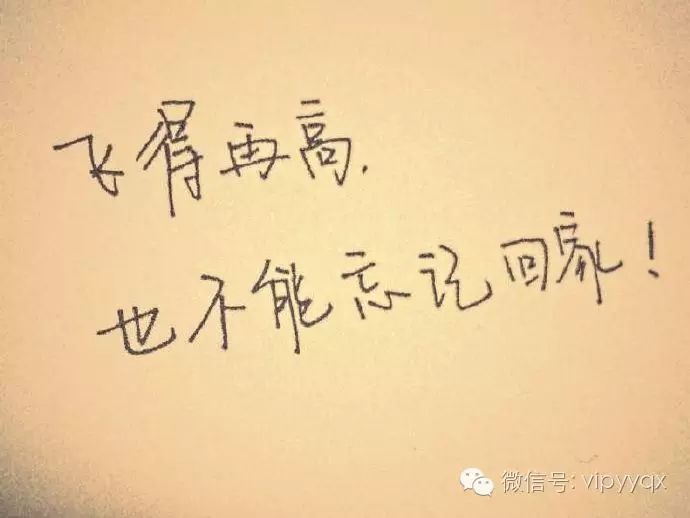 飞得再高.
也不能忘记回家！
微信号: vipyyqx